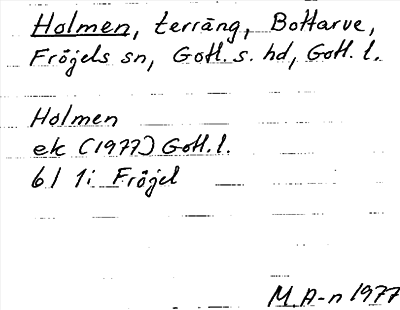 Holmen, terräng, Bottarve,
Fröjels sn, Gotl. s. hd, Gotl. l.
Holmen
ek (1977) Gotl. l.
6 I 1i Fröjel
M. A-n 1977